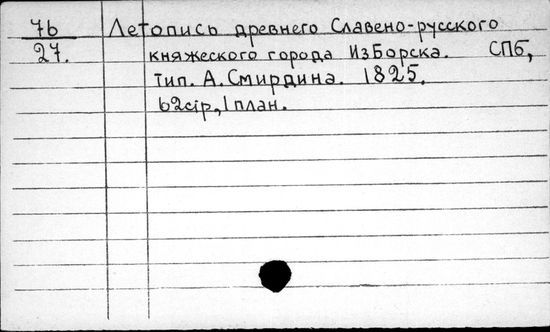 76 Летопись древнего Славено-русского
27. княжеского города Изборска. СПб,
тип. А. Смирдина. 1825.
62стр, 1 план.